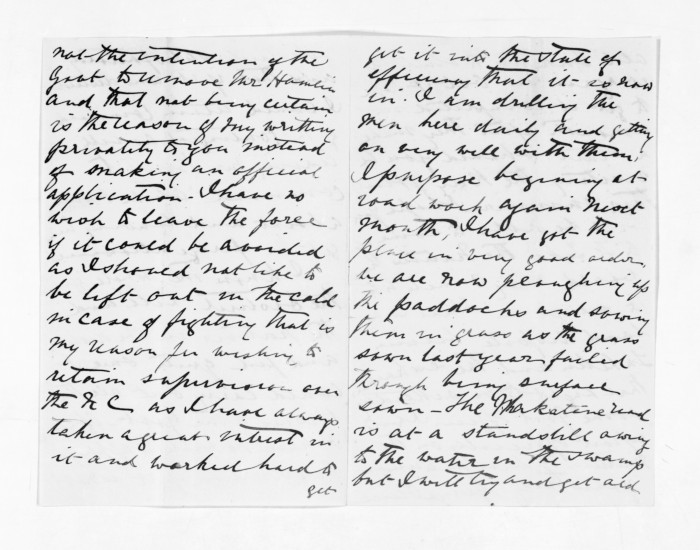 not the intention of the
Govt to remove Mr Hamlin
and that not being certain
is the reason of my writing
privately to you instead
of making an official
application. I have no
wish to leave the force
if it could be avoided
as I should not like to
be left out in the cold
in case of fighting that is
my reason for wishing to
retain supervision over
the N C as I have always
taken a great intrest in
it and worked hard to
get
get it into the state of
efficiency that it is now
in. I am drilling the
men here daily and getting
on very well with them,
I purpose begining at
road work again next
month, I have got the
place in very good order
we are now ploughing up
the paddocks and sowing
them in grass as the grass
sown last year failed
through being surface
sown - The road
is at a standstill owing
to the water in the swamp
but I will try and get